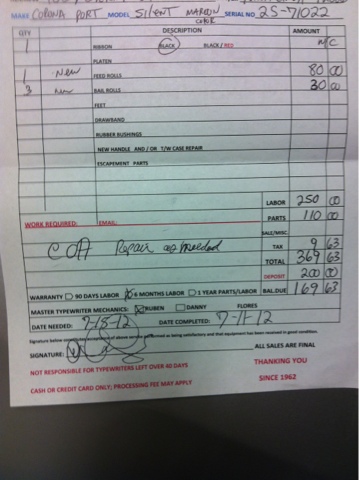 MAKE CORONA PORT MODEL SILENT MAROON COLOR SERIAL NO 2S-71022
QTY DESCRIPTION AMOUNT
1 RIBBON BLACK BLACK / RED N/C
PLATEN
1 New FEED ROLLS 80 00
3 New BAIL ROLLS 30 00
FEET
DRAWBAND
RUBBER BUSHINGS
NEW HANDLE AND / OR T/W CASE REPAIR
ESCAPEMENT PARTS
LABOR 250 00
PARTS 110 00
WORK REQUIRED: EMAIL: SALE/MISC.
COA Repair as needed TAX 9 63
TOTAL 369 63
DEPOSIT 200 00
WARRANTY 90 DAYS LABOR 6 MONTHS LABOR 1 YEAR PARTS/LABOR BAL.DUE 169 63
MASTER TYPEWRITER MECHANICS: RUBEN DANNY FLORES
DATE NEEDED: 7-18-12 DATE COMPLETED: 7-11-12
Signature below acceptance of above service performed as being satisfactory and that equipment has been received in good condition.
SIGNATURE: ALL SALES ARE FINAL
NOT RESPONSIBLE FOR TYPEWRITERS LEFT OVER 30 DAYS THANKING YOU
CASH OR CREDIT CARD ONLY; PROCESSING FEE MAY APPLY SINCE 1962